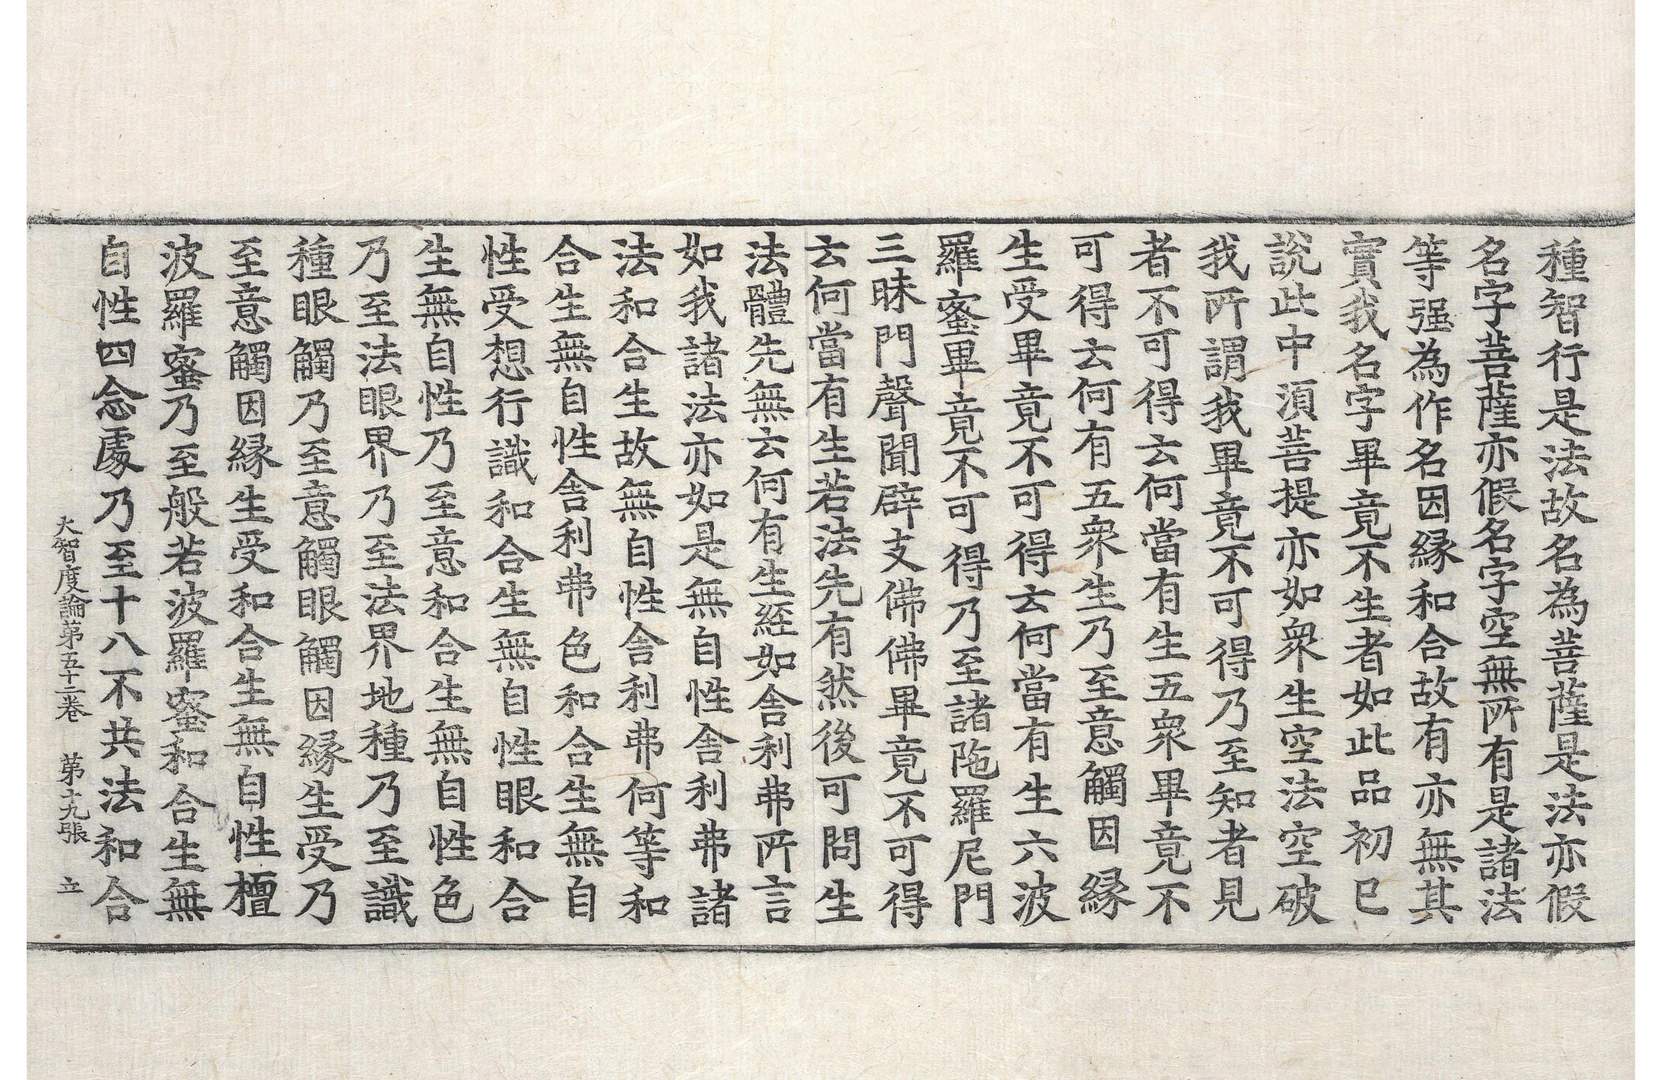 種智行是法故名為菩薩是法亦假
名字菩薩亦假名字空無所有是諸法
等强為作名因緣和合故有亦無其
實我名字畢竟不生者如此品初已
說此中湏菩提亦如衆生空法空破
我所謂我畢竟不可得乃至知者見
者不可得云何當有生五衆畢竟不
可得云何有五衆生乃至意觸因緣
生受畢竟不可得云何當有生六波
羅蜜畢竟不可得乃至諸陁羅尼門
三昧門聲聞辟支佛佛畢竟不可得
云何當有生若法先有然後可問生
法體先無云何有生経如舍利弗所言
如我諸法亦如是無自性舍利弗諸
法和合生故無自性舍利弗何等和
合生無自性舍利弗色和合生無自
性受想行識和合生無自性眼和合
生無自性乃至意和合生無自性色
乃至法眼界乃至法界地種乃至識
種眼觸乃至意觸眼觸因緣生受乃
至意觸因緣生受和合生無自性檀
波羅蜜乃至般若波羅蜜和合生無
自性四念處乃至十八不共法和合
大智度論第五十二卷 第十九張 立